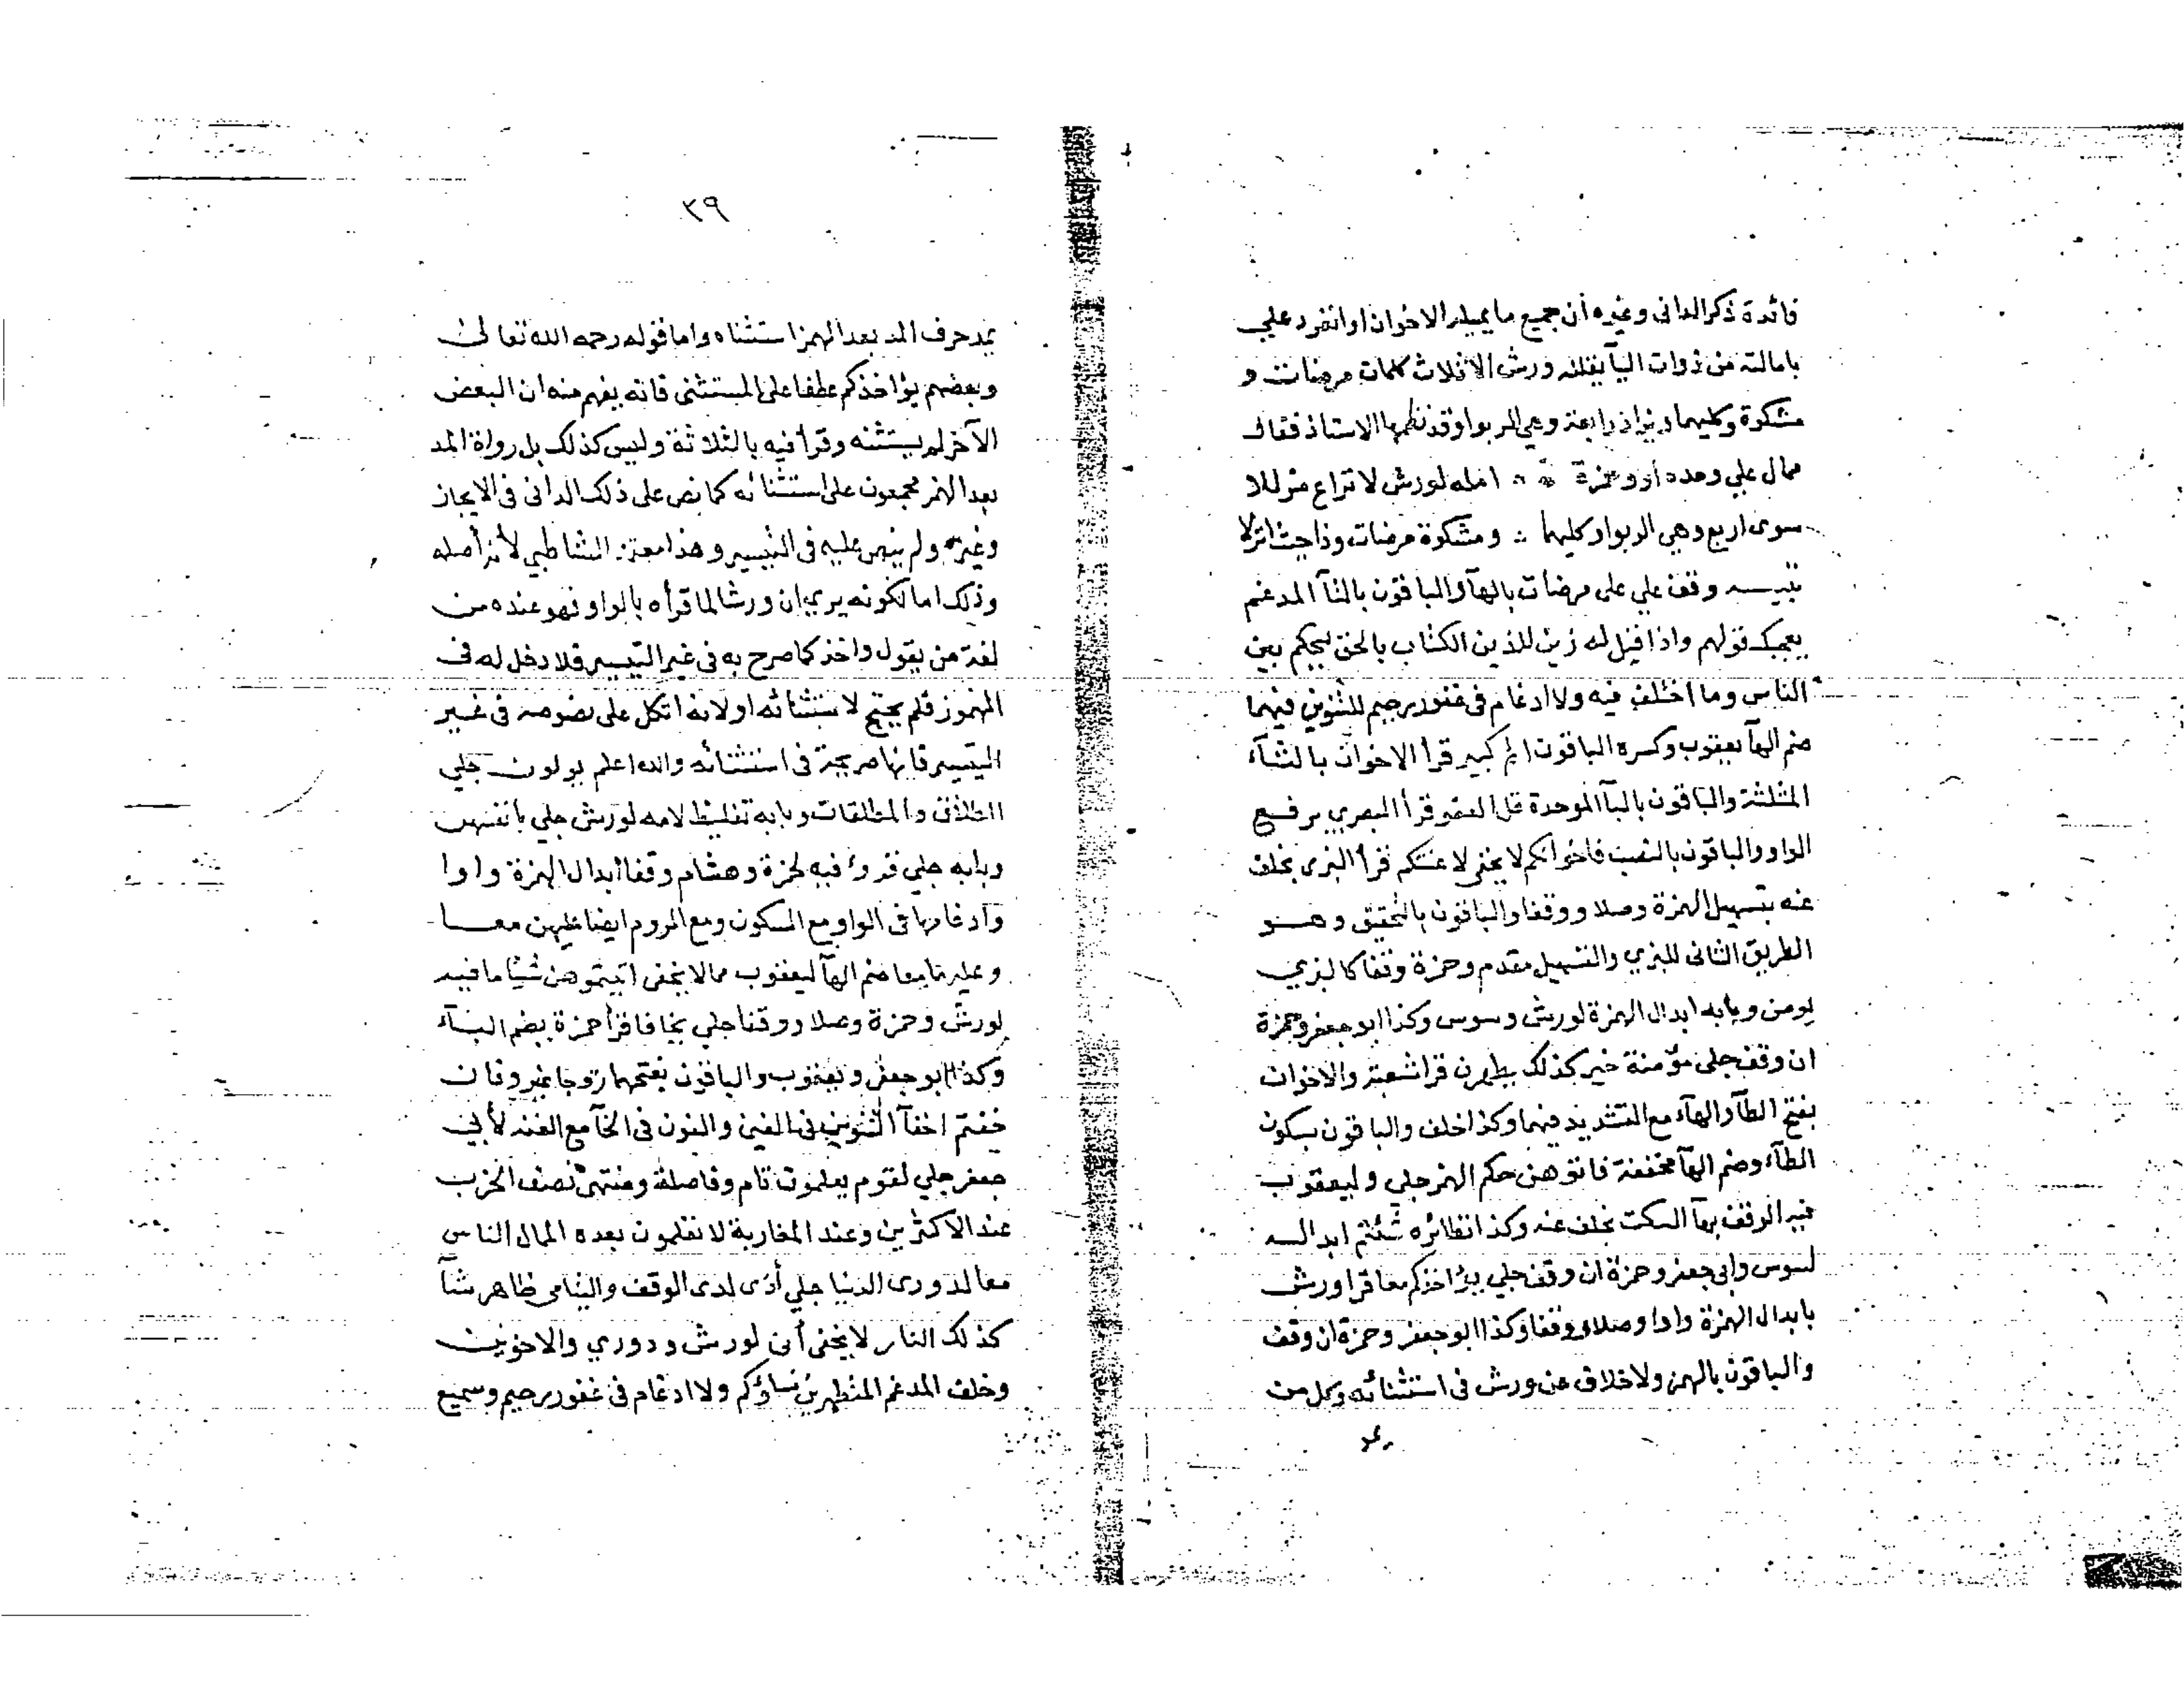 فائدة ذكر الدانى وغيره أن جميع ما يميله الاخوان او انفرد علي
بامالته من ذوات اليآ يقلله ورش الا ثلاث كلمات مرضات و
مشكوة وكليهما ويزاد رابعة وهي الربوا وقد نظمها الاستاذ فقال
ممال علي وحده أو وحمزة امله لورش لا تراع مقللا
سوى اربع وهى الربوا وكليهما ومشكوة مرضات وذا
تنبيـه وقف علي على مرضات بالهآ والباقون بالتآ المدغم
يعجبك قولهم واذا قيل له زين للذين الكتاب بالحق ليحكم بين
الناس وما اختلف فيه ولا ادغام فى غفور رحيم للتنوين فيهما
ضم الهآ يعقوب وكسره الباقون اثم كبير قرأ الاخوان بالثآء
المثلثة والباقون بالبآ الموحدة قل العفو قرأ البصري برفع
الواو والباقون بالنصب فاخوانكم لا يخفى لاعنتكم قرأ البزى بخلف
عنه بتسهيل الهمزة وصلا ووقفا والباقون بالتحقيق وهـو
الطريق الثانى للبزي والتسهيل مقدم وحمزة وقفا كالبزي
يومن وبابه ابدال الهمزة لورش وسوس وكذا ابو جعفر وحمزة
ان وقف جلى مؤمنة خير كذلك يطهرن قرا شعبة والاخوان
بفتح الطآ والهآء مع التشديد فيهما وكذا خلف والباقون بسكون
الطآء وضم الهآ مخففة فاتوهن حكم الهمز جلي وليعقوب
فيه الوقف بهآ السكت بخلف عنه وكذا نظائره شئتم ابداله
لسوس وابى جعفر وحمزة ان وقف جلي يؤاخذكم معا قرا ورش
بابدال الهمزة واوا وصلا ووقفا وكذا ابو جعفر وحمزة ان وقف
والباقون بالهمز ولا خلاف عن ورش فى استثنائه وكل من
يمد
٣٩
يمد حرف المد بعد الهمز استثناه واما قوله رحمه الله تعالى
وبعضهم يؤاخذكم عطفا على المستثنى فانه يفهم منه ان البعض
الآخر لم يستثنه وقرأ فيه بالثلاثة وليس كذلك بل رواة المد
بعد الهمز مجمعون على استثنائه كما نص على ذلك الدانى فى الايجاز
وغيره ولم ينص عليه فى التيسير وهذا معتذر الشاطبي لأنه أصله
وذلك اما لكونه يرى ان ورشا لما قرأه بالواو فهو عنده من
لغة من يقول واخذ كما صرح به فى غير التيسير فلا دخل له فى
المهموز فلم يحتج لاستثنائه او لانه اتكل على نصوصه فى غير
التيسير فانها صريحة فى استثنائه والله اعلم يولون جلي
الطلاق والمطلقات وبابه تغليظ لامه لورش جلي بانفسهن
وبابه جلي قروء فيه لحمزة وهشام وقفا ابدال الهمزة واوا
وادغامها فى الواو مع السكون ومع الروم ايضا عليهن معـا
وعليهما معا ضم الهآ ليعقوب مما لا يخفى اتيتموهن شيئا ما فيه
لورش وحمزة وصلا ووقفا جلي يخافا قرأ حمزة بضم اليـآء
وكذا ابو جعفر ويعقوب والباقون بفتحها زوجا غيره وفان
خفتم اخفآ التنوين فى الغين والنون فى الخآ مع الغنه لأبي
جعفر جلي لقوم يعلمون تام وفاصلة ومنتهى نصف الحزب
عند الاكثرين وعند المغاربة لا تعلمون بعده الممال الناس
معا لدورى الدنيا جلي أذى لدى الوقف واليتامى ظاهر شآ
كذلك النار لا يخفى أنى لورش ودوري والاخوين
وخلف المدغم المتطهرين نساؤكم ولا ادغام فى غفور رحيم وسميع